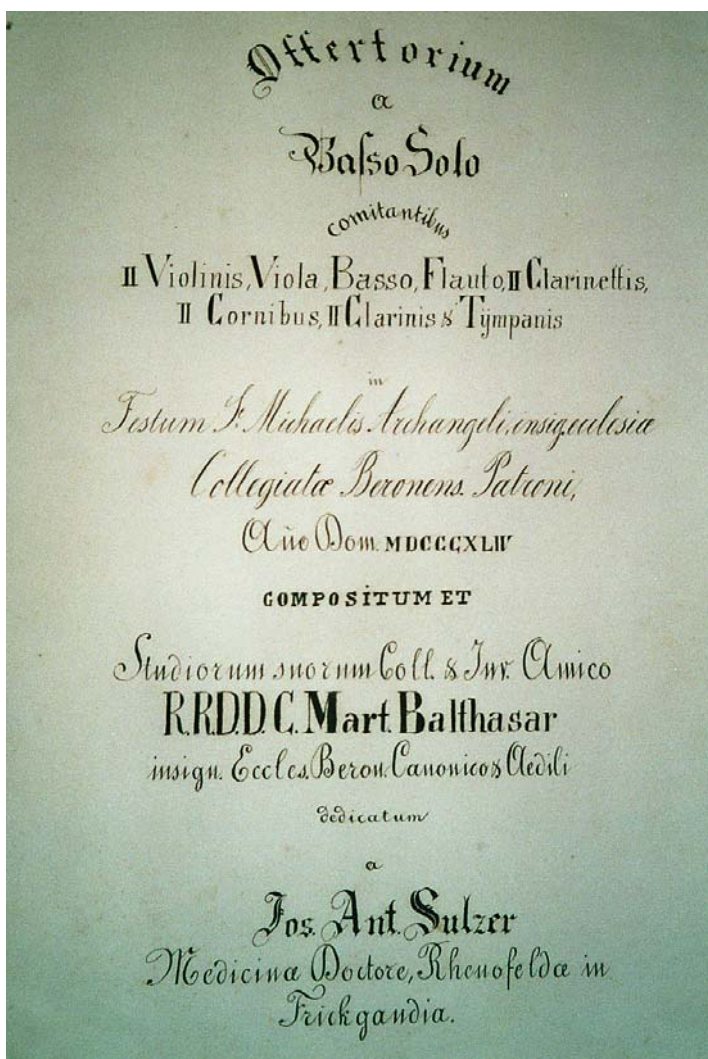 Offertorium
a
Baſso Solo
comitantibus
II Violinis, Viola, Basso, Flauto, II Clarinettis,
II Cornibus, II Clarinis & Tÿmpanis
in
Festum S. Michaelis Archangeli, insig. ecclesiæ
Collegiatæ Beronens. Patroni,
Año Dom. MDCCCXLIV
COMPOSITUM ET
Studiorum suorum Coll. & Juv. Amico
R.R.D.D.C. Mart. Balthasar
insign. Eccles. Beron. Canonico & Aedili
dedicatum
a
Jos. Ant. Sulzer
Medicinæ Doctore, Rhenofeldæ in
Frickgaudia.